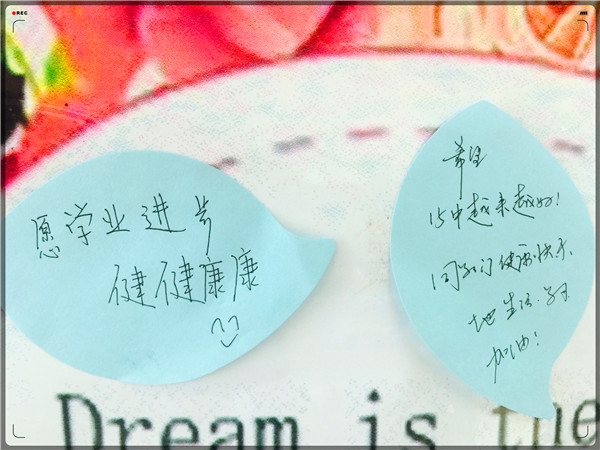 REC
愿学业进步
健健康康
希望
15中越来越好!
同学们健康快乐
地生活、学习
加油!
Dream is the